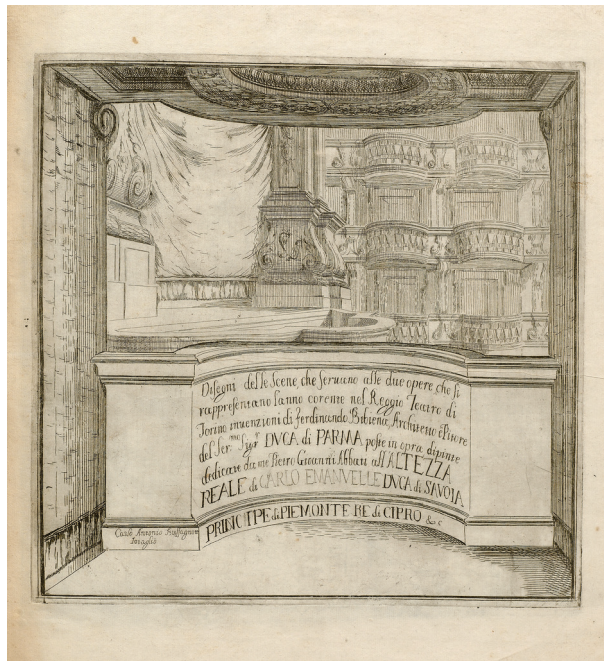 Disegni delle Scene che seruono alle due opere che si
rappresentano l'anno corente nel Reggio Teatro di
Torino inuenzioni di Ferdinando Bibiena Architetto e Pitore
del Ser.mo Sig.r DVCA di PARMA poste in opra dipinte
dedicate da me Pietro Giovanni Abbati all'ALTEZZA
REALE di CARLO EMANVELLE DVCA di SAVOIA
PRINCIPE di PIEMONTE RE di CIPRO &c
Carlo Antonio
Intaglio